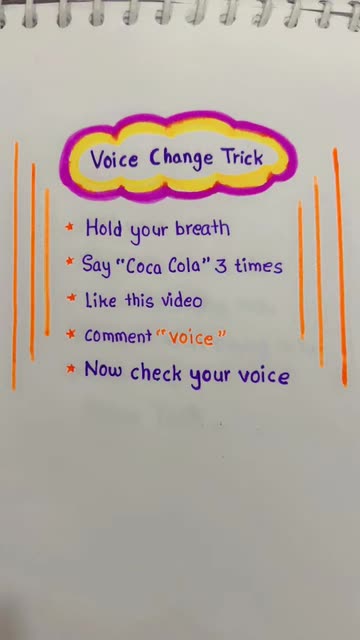 Voice Change Trick
★ Hold your breath
★ Say "Coca Cola" 3 times
★ Like this video
★ comment "voice"
★ Now check your voice